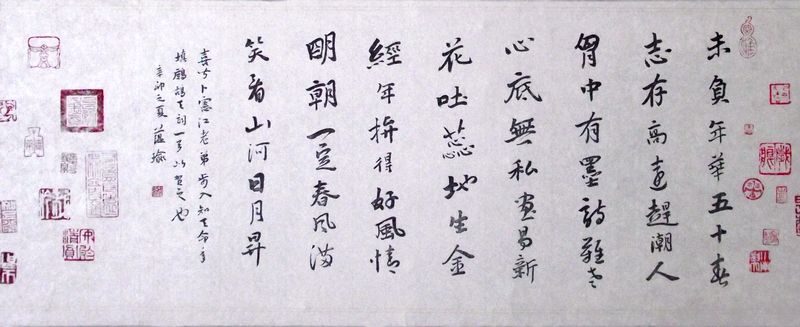 未負年華五十春
志存高遠趕潮人
胷中有墨詩難老
心底無私畫易新
花吐蕊地生金
經年拚得好風情
明朝一定春風滿
笑看山河日月昇
喜吟卜憲江老弟步入知天命年
填鷓鴣天詞一首以賀之也
辛卯之夏 蘊瑜